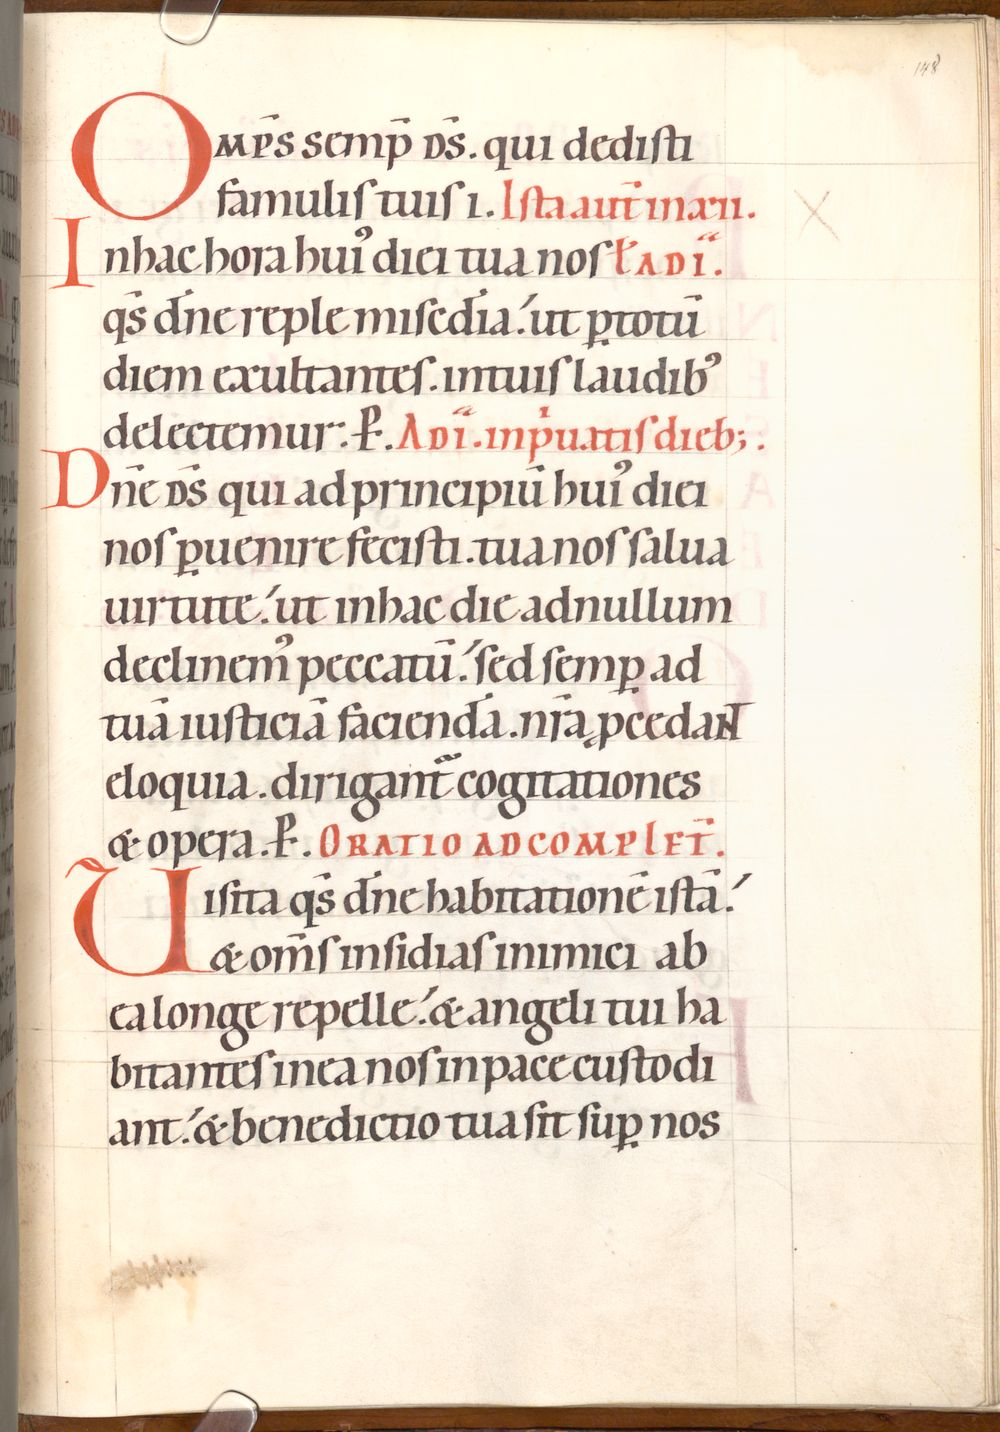 148
Omp̄s semp̄ d̄s. qui dedisti
famulis tuis i. Ista aut̄ in xii.
In hac hora hui᾽ diei tua nos ł ad ī.
qs̄ dn̄e reple misedīa. ut ꝑ totū
diem exultantes. in tuis laudib᾽
delectemur. P̄. Ad ī. in p̄uatis dieb;.
Dn̄e d̄s qui ad principiū hui᾽ diei
nos ꝑuenire fecisti. tua nos salua
uirtute. ut in hac die ad nullum
declinem᾽ peccatū. sed semꝑ ad
tuā iusticiā faciendā. nr̄a ꝓcedant
eloquia. dirigant̄ cogitationes
& opera. P̄. Oratio ad complet̄.
Uisita qs̄ dn̄e habitationē istā.
& om̄s insidias inimici ab
ea longe repelle. & angeli tui ha
bitantes in ea nos in pace custodi
ant. & benedictio tua sit suꝑ nos